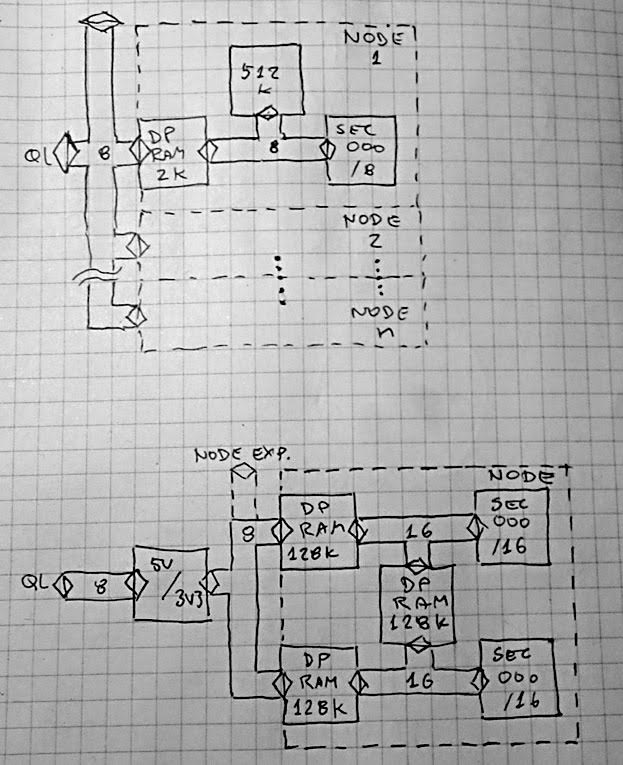 NODE
1
512
K
QL
8
DP
RAM
2K
8
SEC
000
/8
NODE
2
NODE
n
NODE EXP.
NODE
8
DP
RAM
128K
16
SEC
000
/16
QL
8
5V
/
3V3
DP
RAM
128K
DP
RAM
128K
16
SEC
000
/16